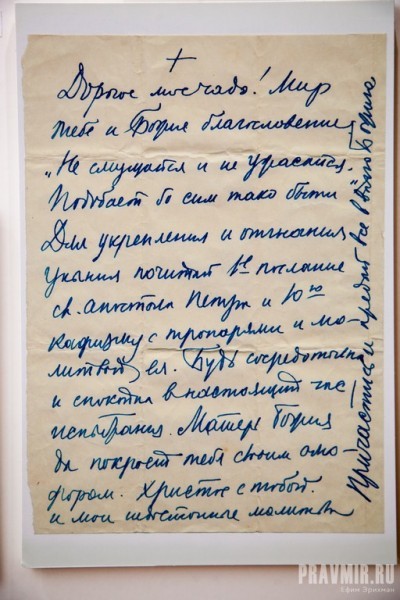 +
Дорогое мое чадо! Мир
тебе и Божие благословение
"Не смущатся и не ужасатся.
Подобает бо сим тако быти"
Для укрепления и отгнания
уныния почитай 1е послание
св. апостола Петра и 10ю
кафизму с тропарями и мо-
литвой ея. Будь сосредоточен
и спокоен в настоящий час
испытания. Матерь Божия
да покроет тебя своим омо-
фором. Христос с тобой.
и мои недостойные молитвы
Причастись и предай все в волю Божию
PRAVMIR.RU
Ефим Эрихман